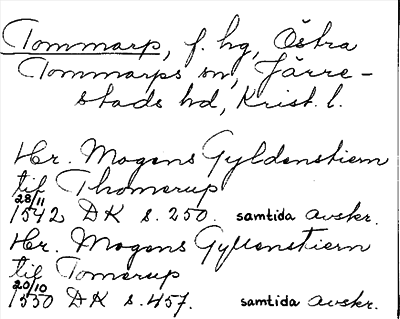 Tommarp, f. hg, Östra
Tommarps sn, Järre-
stads hd, Krist. l.
Hr. Mogens Gyldenstiern
til Thomerup
28/11
1542 DK s. 250. samtida avskr.
Hr. Mogens Gyllenstiern
til Tomerup
20/10
1550 DK s. 457. samtida avskr.